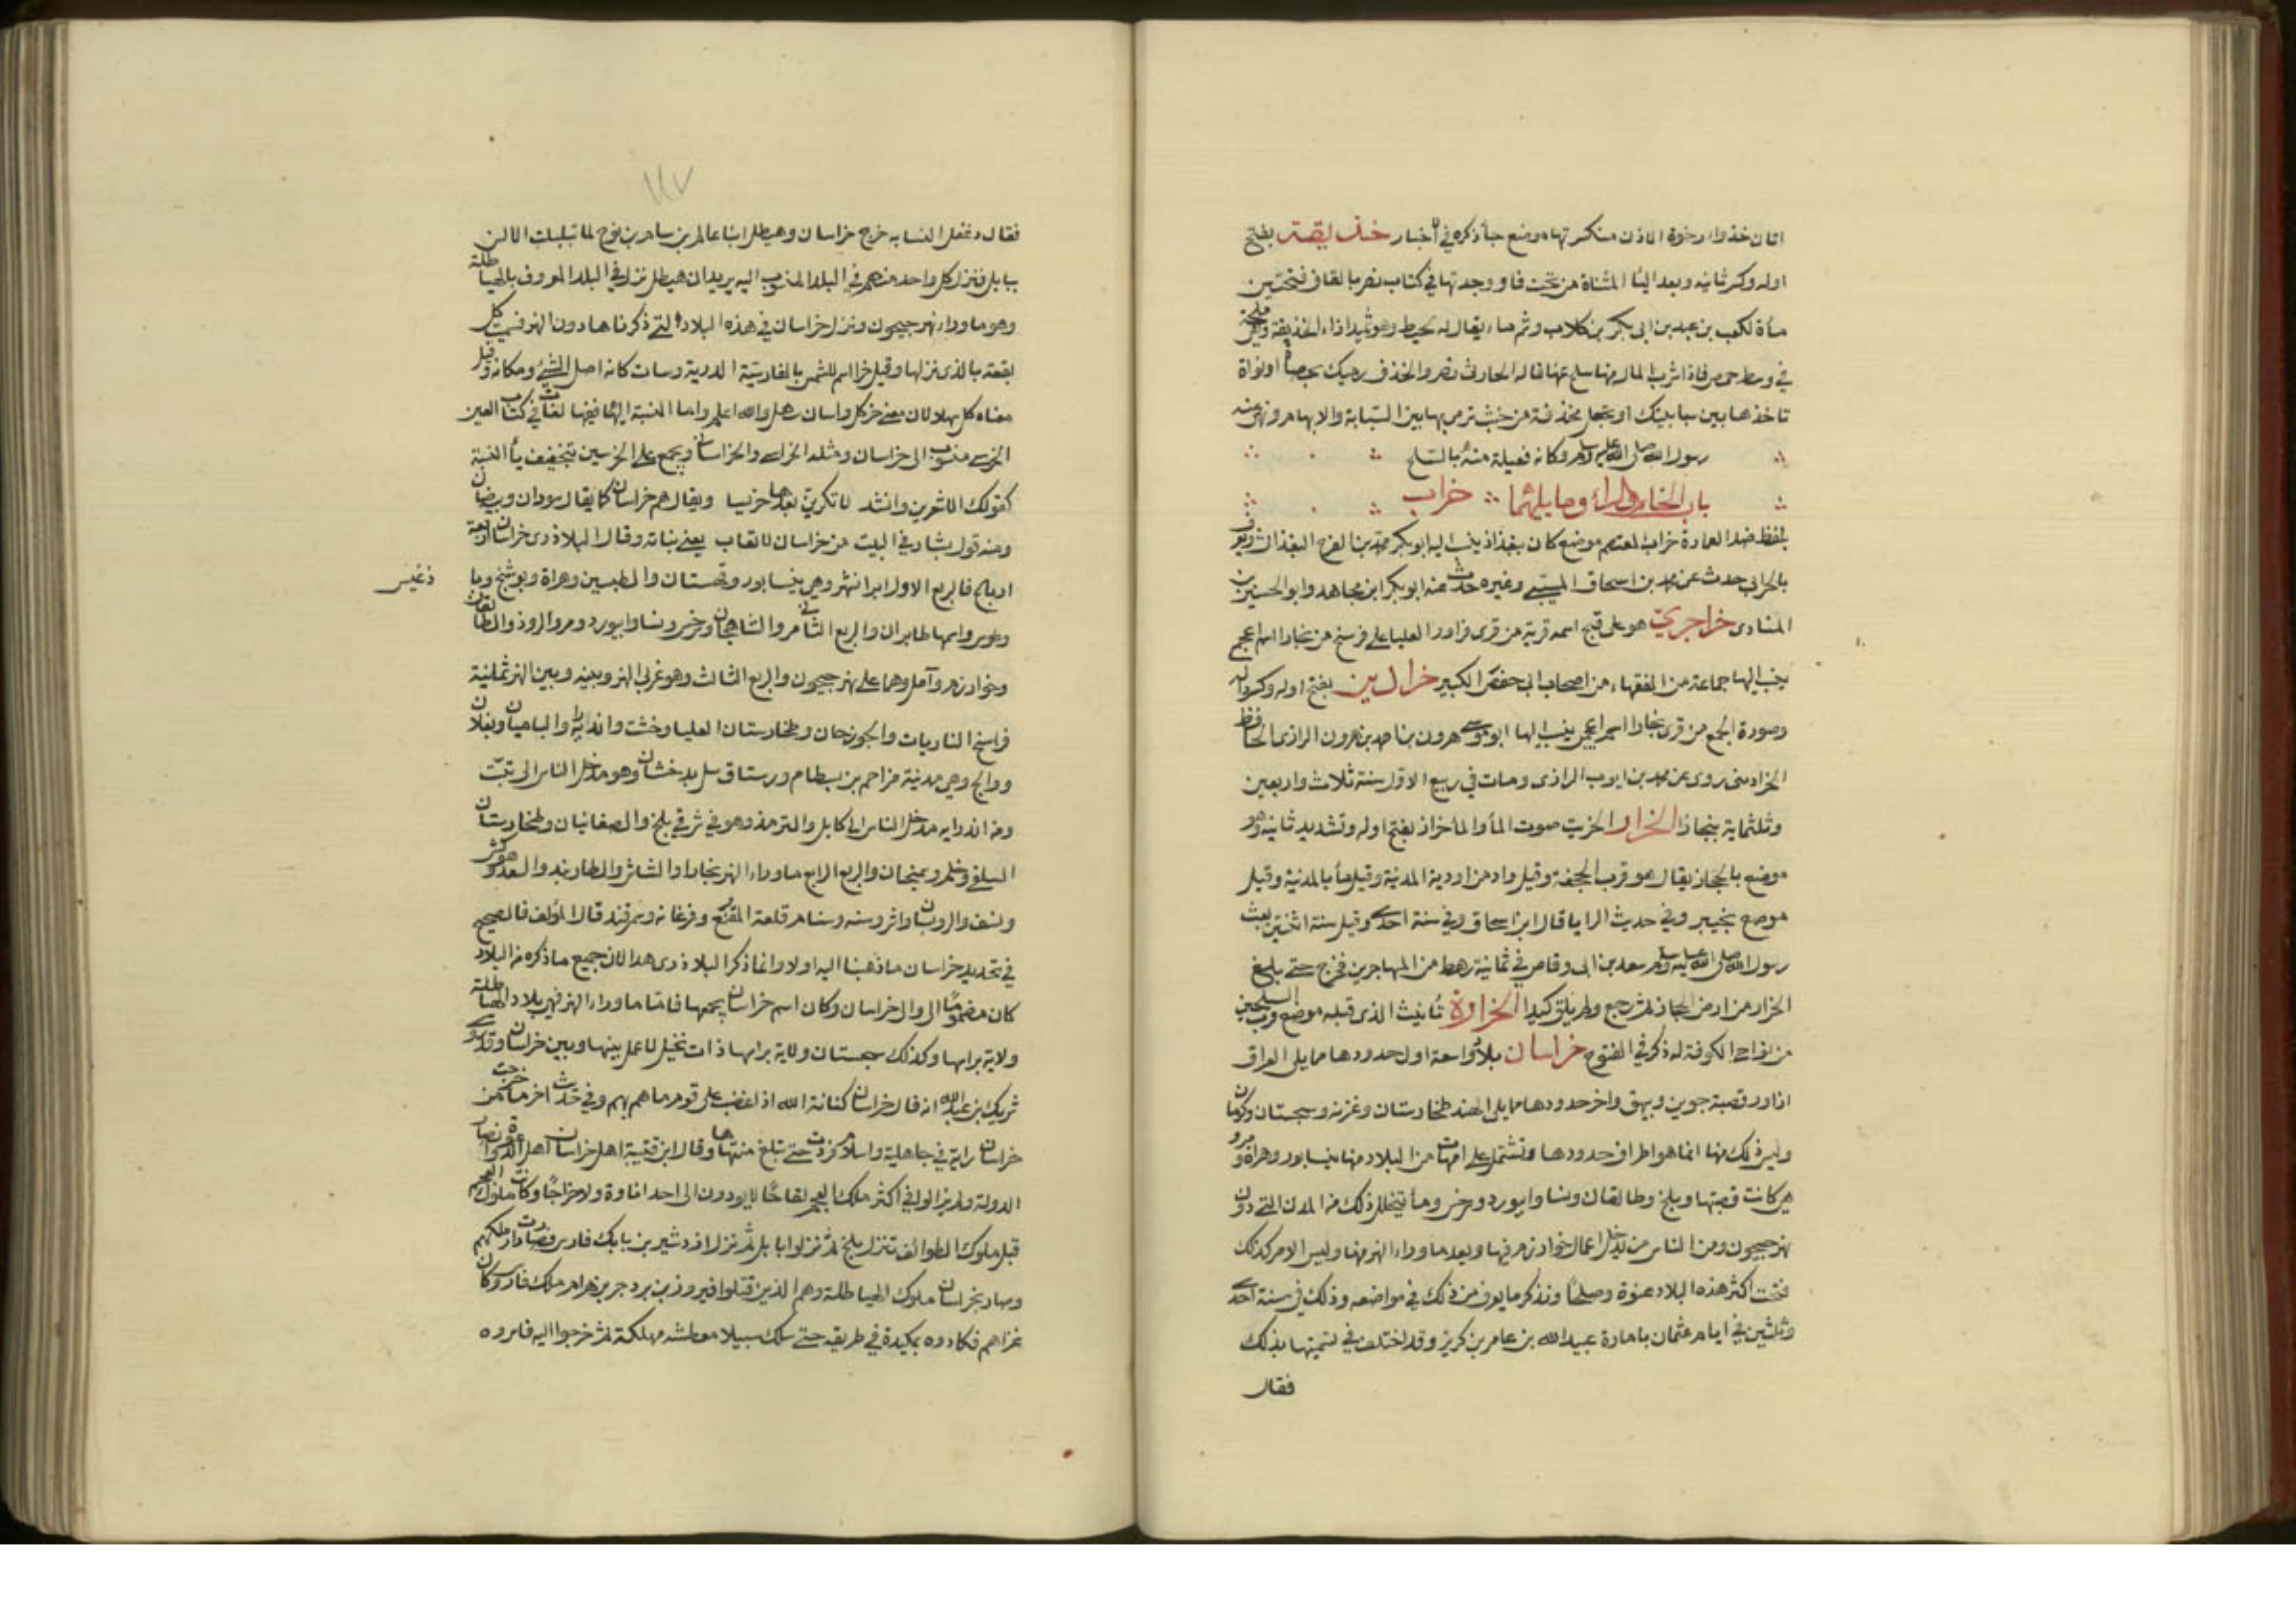 اتان خذوا رخوة الاذن منكسرتها موضع جاء ذكره في اخبار خذيقة بفتح
اوله وكسر ثانيه وبعد اليا المثناة من تحت فا ووجدتها في كتاب نصر بالقاف فتحتين
ماءة لكعب بن عبد بن ابى بكر بن كلاب وثم ماء يقال له لحيط وهو ثميد ازاء الخذيقة وهى ملحة
في وسط حمص فاذا شرب المال منها سلح عنها قاله الحارث نصر والخذف رميك بحصاة او نواة
تاخذها بين سبابتيك او تجعل مخذفة من خشب ترمى بها بين السبابة والابهام ونهى عنه
رسول الله صلى الله عليه وسلم وكانه فعيلة منه بالسلح
باب الخاء والراء وما يليهما خراب
بلفظ ضد العمارة خراب المعتصم موضع كان ببغداذ ينسب اليه ابو بكر محمد بن الفرج البغذادى ويعرف
بالخرابى حدث عن محمد بن اسحاق المسيبى وغيره حدث عنه ابو بكر ابن مجاهد وابو الحسين بن
المنادى خراجرى هو على قبح اسمه قرية من قرى فراوز العليا على فرسخ من بخارا اسم عجمى
ينسب اليها جماعة من الفقهاء من اصحاب ابى حفص الكبير خرادين بفتح اوله وكسر داله
وصورة الجمع من قرى بخارا اسم اعجمى ينسب اليها ابو موسى هرون بن احمد بن هرون الرازى الحافظ
الخرادينى روى عن محمد بن ايوب الرازى ومات في ربيع الاول سنة ثلاث واربعين
وثلثماية ببخارا الخرار الخرير صوت الماء والماء خرار بفتح اوله وتشديد ثانيه وهو
موضع بالحجاز يقال هو قرب الجحفة وقيل واد من اودية المدينة وقيل ماء بالمدينة وقيل
موضع بخيبر وفي حديث السرايا قال ابن اسحاق وفي سنة احدى وقيل سنة اثنتين بعث
رسول الله صلى الله عليه وسلم سعد بن ابى وقاص في ثمانية رهط من المهاجرين فخرج حتى بلغ
الخرار من ارض الحجاز ثم رجع ولم يلق كيدا الخرارة تأنيث الذى قبله موضع قرب السيلحين
من نواحى الكوفة له ذكر في الفتوح خراسان بلاد واسعة اول حدودها مما يلى العراق
ازاذور قصبة جوين وبيهق واخر حدودها مما يلى الهند طخارستان وغزنه وسجستان وكرمان
وليس ذلك منها انما هو اطراف حدودها وتشتمل على امهات من البلاد منها نيسابور وهراة ومرو
هى كانت قصبتها وبلخ وطالقان ونسا وابيورد وسرخس وما يتخلل ذلك من المدن التي دون
نهر جيحون ومن الناس من يدخل اعمال خوارزم فيها ويعد ما وراء النهر منها وليس الامر كذلك
فتحت اكثر هذه البلاد عنوة وصلحا ونذكر ما يعرف من ذلك في مواضعه وذلك في سنة احدى
وثلثين في ايام عثمان بامارة عبيد الله بن عامر بن كريز وقد اختلف في تسميتها بذلك
فقال
١١٧
فقال دغفل النسابه خرج خراسان وهيطل ابنا عالم بن سام بن نوح لما تبلبلت الالسن
ببابل فنزل كل واحد منهم في البلد المنسوب اليه يريد ان هيطل نزل في البلد المعروف بالهياطلة
وهو ما وراء نهر جيحون ونزل خراسان في هذه البلاد التي ذكرناها دون النهر فسميت كل
بقعة بالذى نزلها وقيل خر اسم للشمس بالفارسية الدرية وسان كانه اصل الشئ ومكانه وقيل
معناه كل سهلا لان معنى خر كل واسان سهل والله اعلم واما النسبة اليها ففيها لغات في كتاب العين
الخرسى منسوب الى خراسان ومثله الخراسى والخراسانى ويجمع على الخرسين بتخفيف ياء النسبة
كقولك الاشعرين وانشد لا تكرمن بعدها خرسيا ويقال هم خراسان كما يقال سودان وبيضان
ومنه قول بشار في البيت من خراسان لا تعاب يعنى بناته وقال البلاذرى خراسان اربعة
ارباع فالربع الاول ايرانشهر وهى نيسابور وقهستان والطبسين وهراة وبوشنج وبا
ذغيس
وطوس واسمها طابران والربع الثاني مرو الشاهجان وسرخس ونسا وابيورد ومرو الروذ والطالقان
وخوارزم وآمل وهما على نهر جيحون والربع الثالث وهو غربى النهر وبينه وبين النهر ثمانية
فراسخ الفاريات والجوزجان وطخارستان العليا وخشت واندرابه والباميان وبغلان
ووالج وهى مدينة مزاحم بن بسطام ورستاق بيل بدخشان وهو مدخل الناس الى تبت
ومن اندرابه مدخل الناس الى كابل والترمذ وهو في شرقى بلخ والصغانيان وطخارستان
السفلى وخلم وسمنجان والربع الرابع ما وراء النهر بخارا والشاش والطاربند والسغد وهو كش
ونسف والروبستان واشروسنه وسنام قلعة المقنع وفرغانه وسمرقند قال المؤلف فالصحيح
في تحديد خراسان ما ذهبنا اليه اولا وانما ذكر البلاذرى هذا لان جميع ما ذكره من البلاد
كان مضموما الى والى خراسان وكان اسم خراسان يجمعها فاما ما وراء النهر فهى بلاد الهياطلة
ولاية برأسها وكذلك سجستان ولاية برأسها ذات نخيل لا عمل بينها وبين خراسان وقد روى
شريك بن عبد الله انه قال خراسان كنانة الله اذا غضب على قوم رماهم بهم وفي حديث اخر ما خرجت من
خراسان راية في جاهلية واسلام فردت حتى تبلغ منتهاها وقال ابن قتيبة اهل خراسان اهل الدعوة وانصار
الدولة ولم يزالوا في اكثر ملك العجم لقاحا لا يودون الى احد اتاوة ولا خراجا وكانت ملوك العجم
قبل ملوك الطوائف تنزل بلخ ثم نزلوا بابل ثم نزل اردشير بن بابك فارس فصارت دار ملكهم
وصار بخراسان ملوك الهياطلة وهم الذين قتلوا فيروز بن يزدجر بن بهرام ملك فارس وكان
غزاهم فكادوه بمكيدة في طريقه حتى سلك سبيلا معطشه مهلكة ثم خرجوا اليه فاسروه